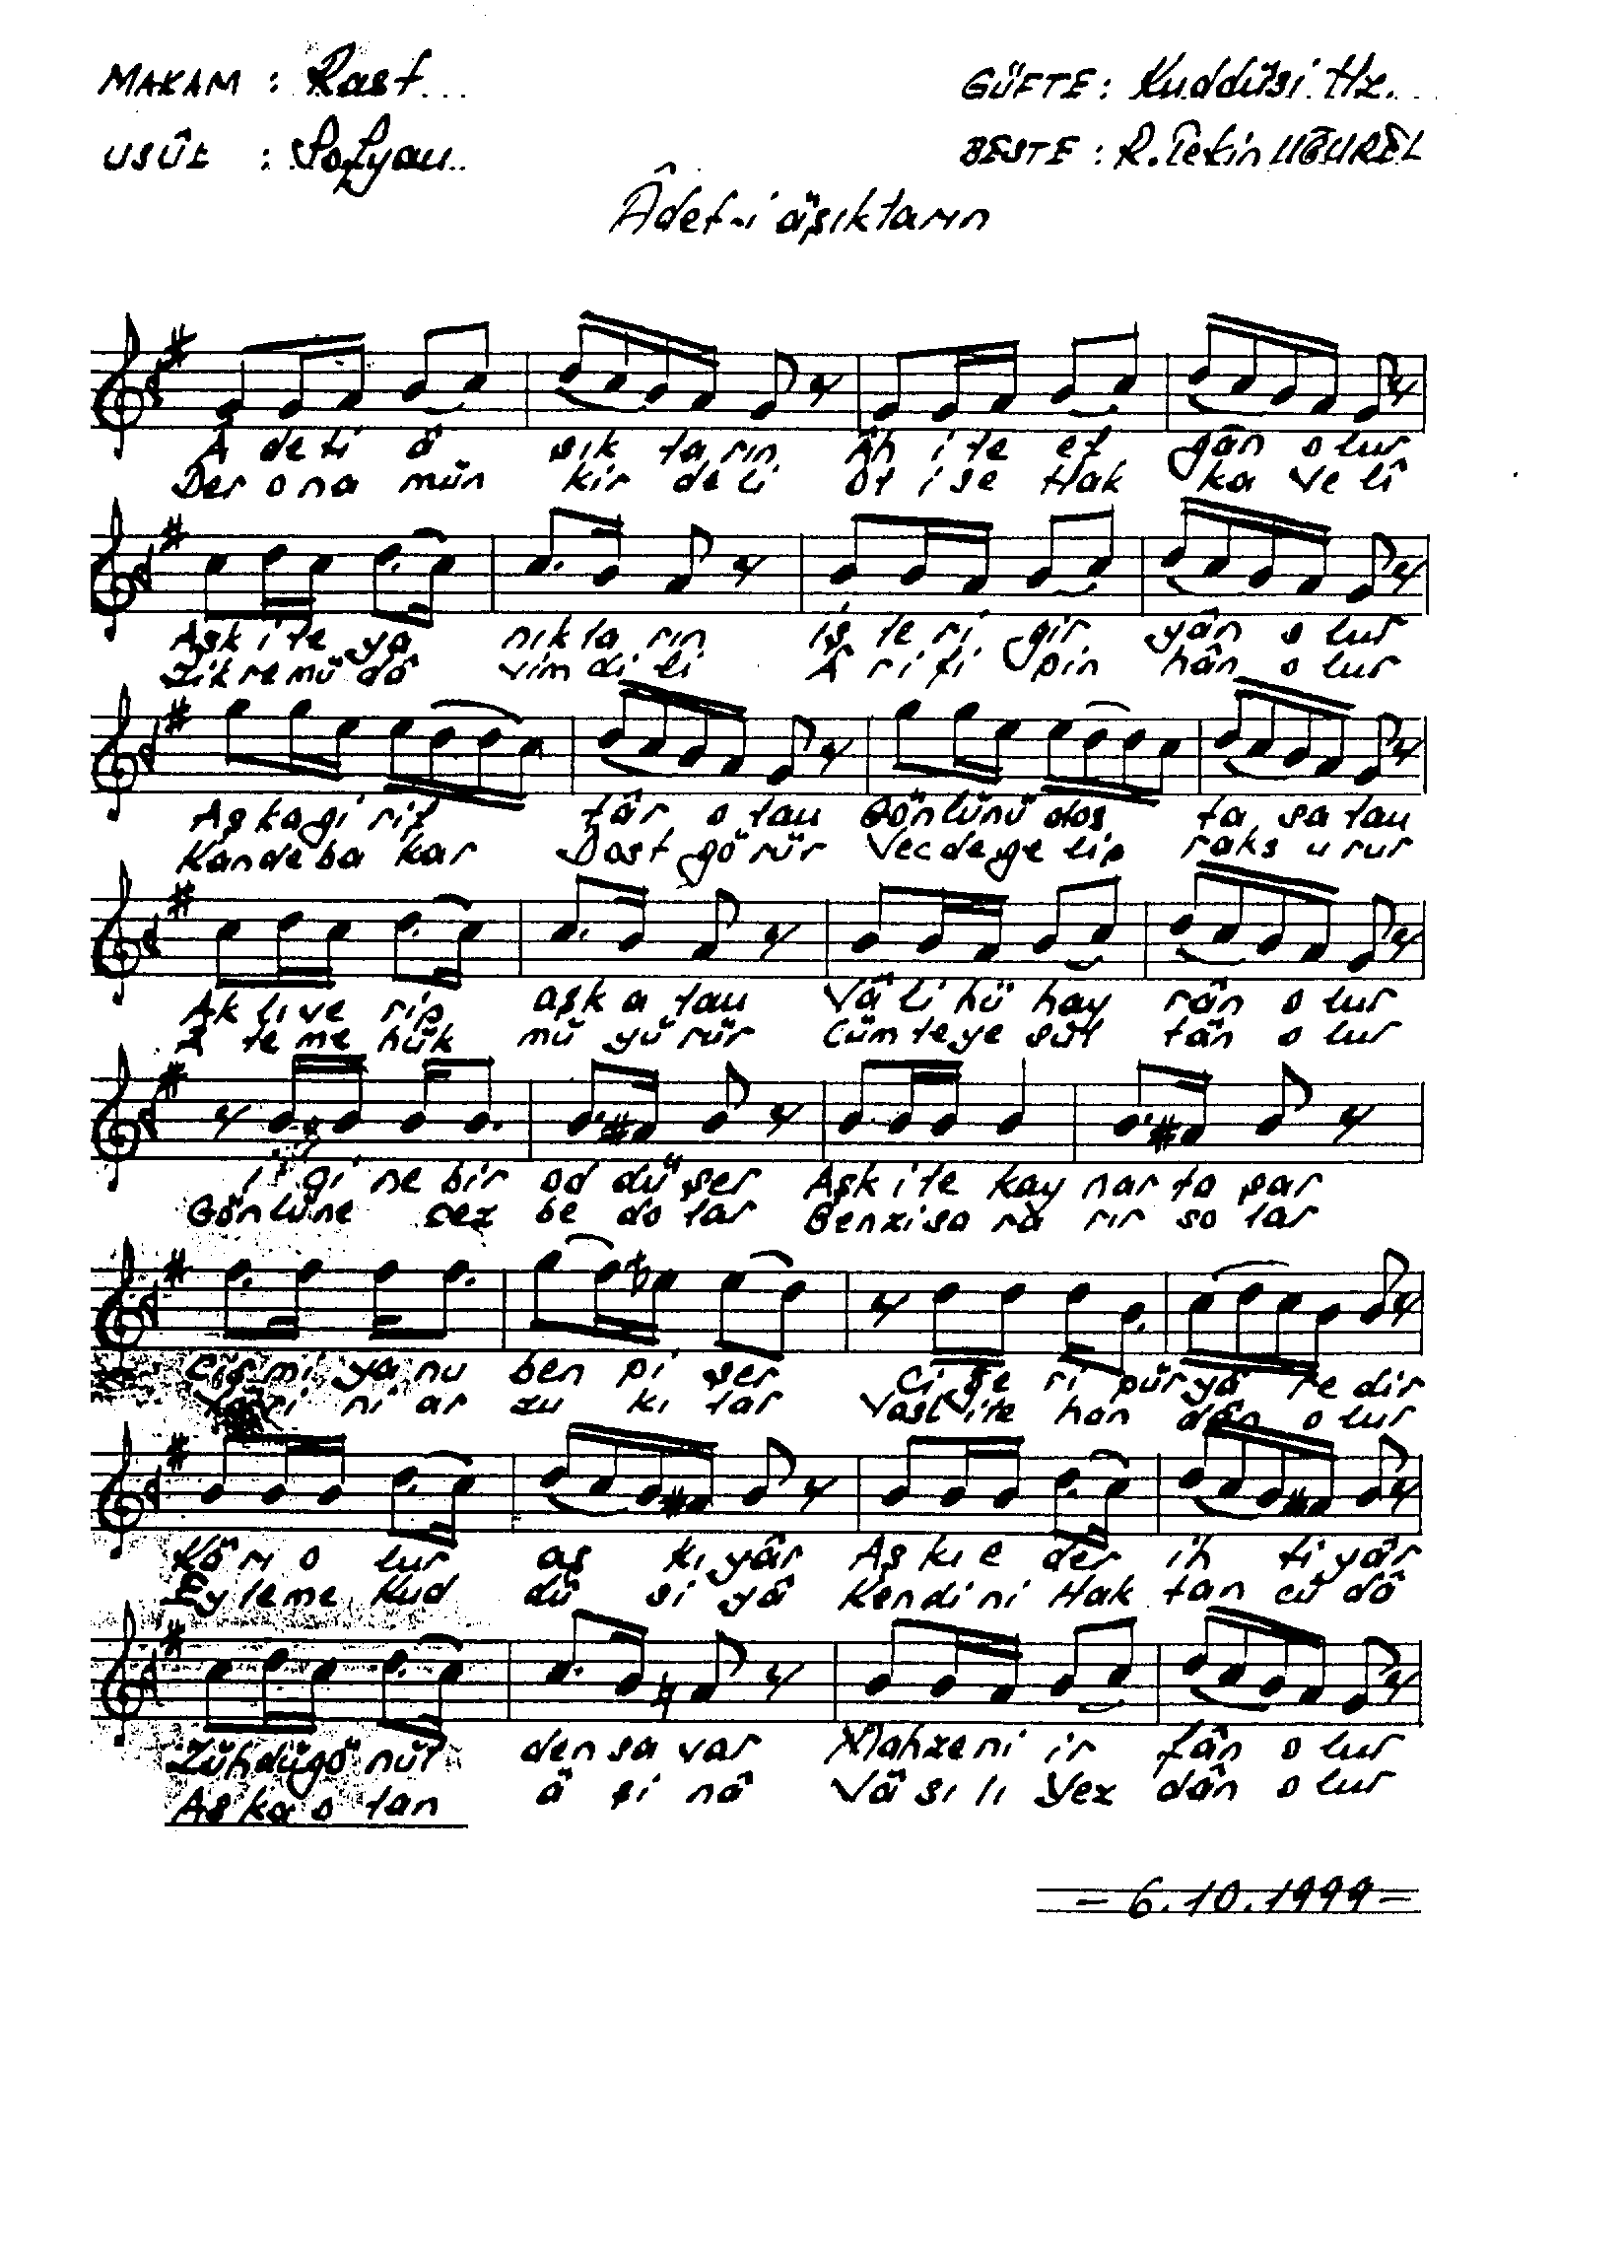 MAKAM : Rast...
GÜFTE : Kuddûsi Hz...
USÛL : Sofyan..
BESTE : R. Tekin UĞUREL
Âdet-i âşıkların
Â de ti â şık la rın Âh i le ef gân o lur
Der o na mün kir de li Ol i se Hak ka ve lî
Aşk i le ya nık la rın iş le ri gir yân o lur
Zik re mü dâ vim di li Â ri fi pin hân o lur
Aşka gi rif târ o lan Gönlünü dos ta sa tan
Kande ba kar Dost görür Vecde ge lip raks u rur
Ak lı ve rip aşk a lan Vâ li hü hay rân o lur
 le me hük mü yü rür Cüm le ye sul tân o lur
i çi ne bir od dü şer Aşk i le kay nar ta şar
Gönlüne cez be do lar Benzi sa ra rır so lar
Cis mi ya nu ben pi şer Ci ğe ri pür yâ re dir
ni ar zu kı lar Vasl ile han dân o lur
Kâ rı o lur aş kı yâr Aş kı e der ih ti yâr
Ey le me Kud dû si yâ Kendi ni Hak tan cü dâ
Zühdü gö nül den sa var Mahzeni ir fân o lur
Aş ka o lan â şi nâ Vâ sı lı Yez dân o lur
– 6.10.1999 –